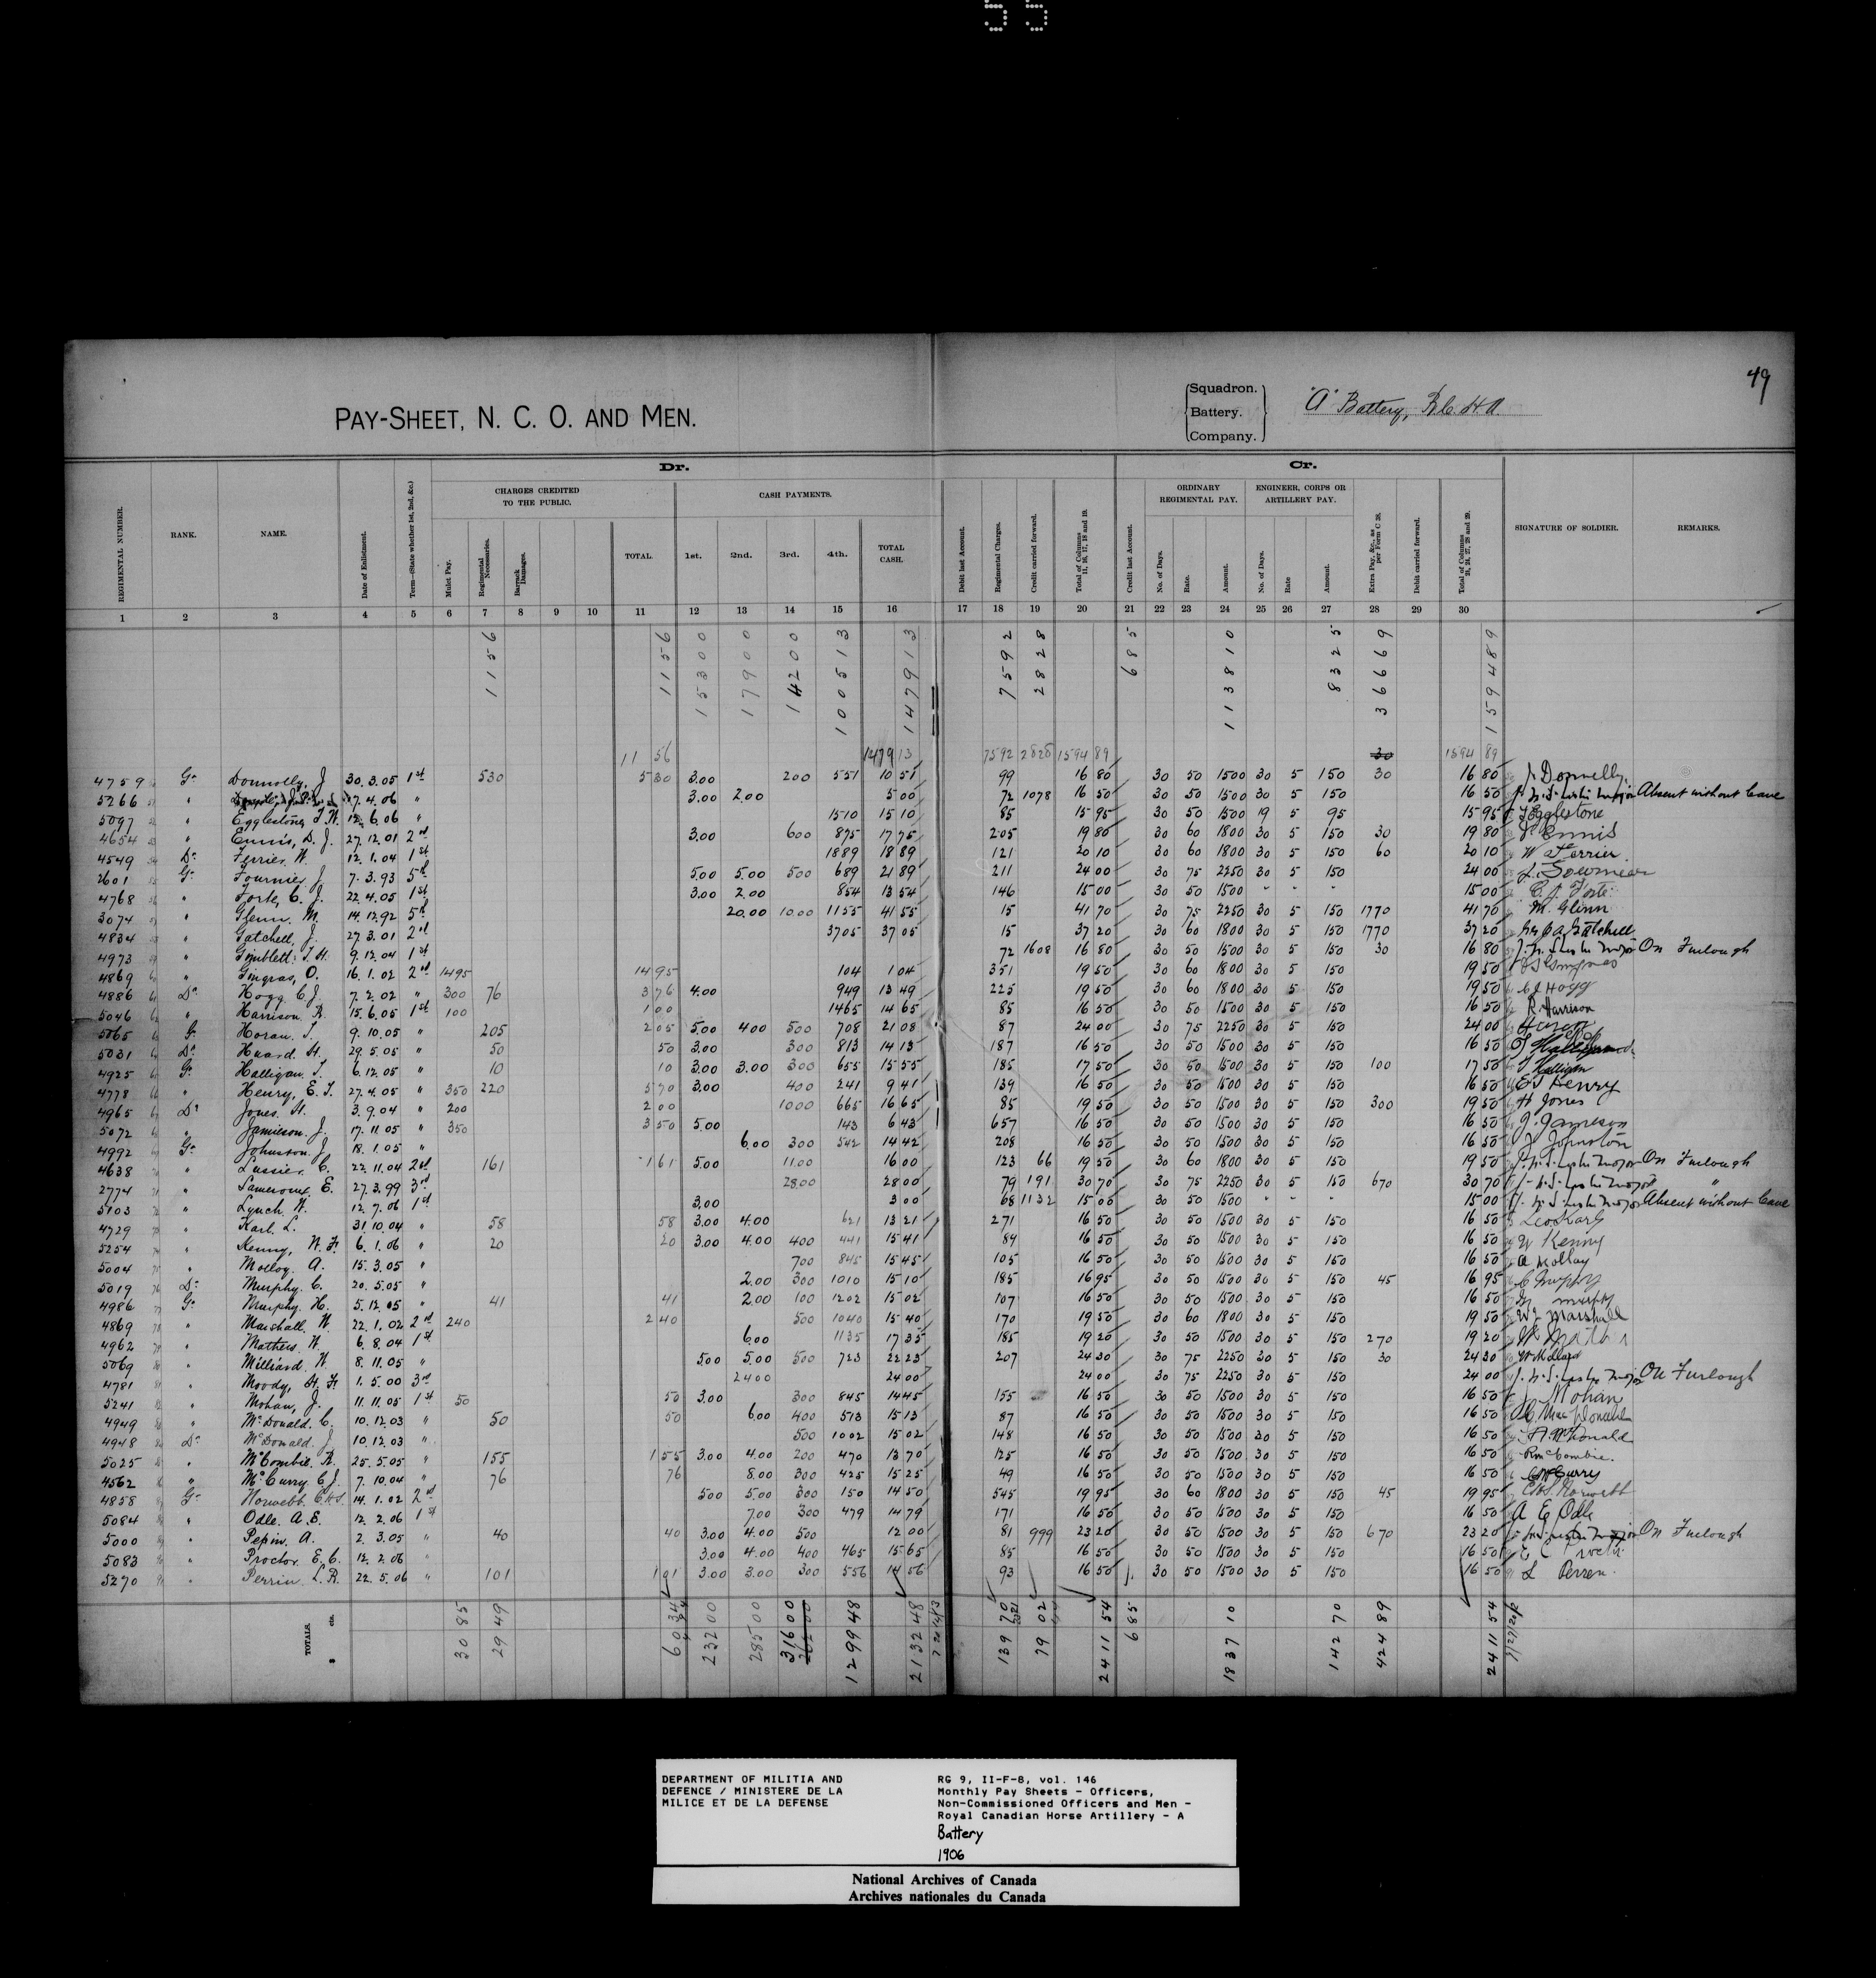 55
49
PAY-SHEET, N. C. O. AND MEN.
Squadron.
Battery. "A" Battery, R.C.H.A.
Company.
Dr. Cr.
CHARGES CREDITED TO THE PUBLIC. CASH PAYMENTS. ORDINARY REGIMENTAL PAY. ENGINEER, CORPS OR ARTILLERY PAY.
REGIMENTAL NUMBER. RANK. NAME. Date of Enlistment. Term—(State whether 1st, 2nd, &c.) Mulct Pay. Regimental Necessaries. Barrack Damages. TOTAL. 1st. 2nd. 3rd. 4th. TOTAL CASH. Debit last Account. Regimental Charges. Credit carried forward. Total of Columns 11, 16, 17, 18 and 19. Credit last Account. No. of Days. Rate. Amount. No. of Days. Rate Amount. Extra Pay, &c., as per Form C 28. Debit carried forward. Total of Columns 21, 24, 27, 28 and 29. SIGNATURE OF SOLDIER. REMARKS.
1 2 3 4 5 6 7 8 9 10 11 12 13 14 15 16 17 18 19 20 21 22 23 24 25 26 27 28 29 30
1156 1156 15300 17900 14200 100513 147913 7592 2828 685 113810 8325 36669 159489
11 56 1479 13 7592 2828 1594 89 30 1594 89
4759 Gr Donnolly, J 30.3.05 1st 530 530 3.00 200 551 10 51 99 16 80 30 50 1500 30 5 150 30 16 80 J. Donnelly
5266 " 7.4.06 " 3.00 2.00 5 00 72 1078 16 50 30 50 1500 30 5 150 16 50 Major Absent without leave
5097 " Egglestone, T.W. 12.6.06 " 1510 15 10 85 15 95 30 50 1500 19 5 95 15 95 T Egglestone
4654 " Ennis, D. J. 27.12.01 2nd 3.00 600 875 17 75 205 19 80 30 60 1800 30 5 150 30 19 80 J Ennis
4549 Dr Ferrier, W. 12.1.04 1st 1889 18 89 121 20 10 30 60 1800 30 5 150 60 20 10 W Ferrier
2601 Gr Fournier, J 7.3.93 5th 5.00 5.00 500 689 21 89 211 24 00 30 75 2250 30 5 150 24 00 J. Fournier
4768 " Forte, C. J. 22.4.05 1st 3.00 2.00 854 13 54 146 15 00 30 50 1500 " " " 15 00 C. J. Forte
3074 " Glenn, M. 14.12.92 5th 20.00 10.00 1155 41 55 15 41 70 30 75 2250 30 5 150 1770 41 70 M. Glinn
4834 " Gatchell, J. 27.3.01 2nd 3705 37 05 15 37 20 30 60 1800 30 5 150 1770 37 20 Gatchell
4973 " Gimblett, T.H. 9.12.04 1st 72 1608 16 80 30 50 1500 30 5 150 30 16 80 Major On Furlough
4869 " Gingras, O. 16.1.02 2nd 1495 1495 104 1 04 351 19 50 30 60 1800 30 5 150 19 50 Gingras
4886 Dr Hogg, C.J. 7.2.02 " 300 76 376 4.00 949 13 49 225 19 50 30 60 1800 30 5 150 19 50 C J Hogg
5046 " Harrison, R. 15.6.05 1st 100 100 1465 14 65 85 16 50 30 50 1500 30 5 150 16 50 R. Harrison
5065 Gr Horan, T. 9.10.05 " 205 205 5.00 4.00 500 708 21 08 87 24 00 30 75 2250 30 5 150 24 00 Horan
5031 Dr Huard, H. 29.5.05 " 50 50 3.00 300 813 14 13 187 16 50 30 50 1500 30 5 150 16 50
4925 Gr Halligan, T. 6.12.05 " 10 10 3.00 3.00 300 655 15 55 185 17 50 30 50 1500 30 5 150 100 17 50 T Halligan
4778 " Henry, E.T. 27.4.05 " 350 220 570 3.00 400 241 9 41 139 16 50 30 50 1500 30 5 150 16 50 E T Henry
4965 Dr Jones, H. 3.9.04 " 200 200 1000 665 16 65 85 19 50 30 50 1500 30 5 150 300 19 50 H Jones
5072 " Jamieson, J. 17.11.05 " 350 350 5.00 143 6 43 657 16 50 30 50 1500 30 5 150 16 50 J. Jameson
4992 Gr Johnston, J 18.1.05 " 6.00 300 542 14 42 208 16 50 30 50 1500 30 5 150 16 50 J Johnston
4638 " Lussier, C. 22.11.04 2nd 161 161 5.00 11.00 16 00 123 66 19 50 30 60 1800 30 5 150 19 50 Major On Furlough
2774 " Lameroux, E. 27.3.99 3rd 28.00 28 00 79 191 30 70 30 75 2250 30 5 150 670 30 70 Major "
5103 " Lynch, W. 12.7.06 1st 3.00 3 00 68 1132 15 00 30 50 1500 " " " 15 00 Major Absent without leave
4729 " Karl, L. 31.10.04 " 58 58 3.00 4.00 621 13 21 271 16 50 30 50 1500 30 5 150 16 50 Leo Karl
5254 " Kenny, W.H. 6.1.06 " 20 20 3.00 4.00 400 441 15 41 84 16 50 30 50 1500 30 5 150 16 50 W Kenny
5004 " Molloy, A. 15.3.05 " 700 845 15 45 105 16 50 30 50 1500 30 5 150 16 50 A Molloy
5019 Dr Murphy, C. 20.5.05 " 2.00 300 1010 15 10 185 16 95 30 50 1500 30 5 150 45 16 95 C Murphy
4986 Gr Murphy, H. 5.12.05 " 41 41 2.00 100 1202 15 02 107 16 50 30 50 1500 30 5 150 16 50 H Murphy
4869 " Marshall, W. 22.1.02 2nd 240 240 500 1040 15 40 170 19 50 30 60 1800 30 5 150 19 50 W Marshall
4962 " Mathers, W. 6.8.04 1st 6.00 1135 17 35 185 19 20 30 50 1500 30 5 150 270 19 20
5069 " Milliard, W. 8.11.05 " 5.00 5.00 500 723 22 23 207 24 30 30 75 2250 30 5 150 30 24 30 W Millard
4781 " Moody, H.H. 1.5.00 3rd 2400 24 00 24 00 30 75 2250 30 5 150 24 00 Major On Furlough
5241 " Mohan, J. 11.11.05 1st 50 50 3.00 300 845 14 45 155 16 50 30 50 1500 30 5 150 16 50 J Mohan
4949 " McDonald, C. 10.12.03 " 50 50 6.00 400 513 15 13 87 16 50 30 50 1500 30 5 150 16 50 C. MacDonald
4948 Dr McDonald, J 10.12.03 " 500 1002 15 02 148 16 50 30 50 1500 30 5 150 16 50 McDonald
5025 " McCombie, R. 25.5.05 " 155 155 3.00 4.00 200 470 13 70 125 16 50 30 50 1500 30 5 150 16 50 R McCombie
4562 " McCurry, C.J. 7.10.04 " 76 76 8.00 300 425 15 25 49 16 50 30 50 1500 30 5 150 16 50 C McCurry
4858 Gr Norwebb, C.H.S. 14.1.02 2nd 500 5.00 300 150 14 50 545 19 95 30 60 1800 30 5 150 45 19 95 C.H.S. Norwebb
5084 " Odle, A.E. 12.2.06 1st 7.00 300 479 14 79 171 16 50 30 50 1500 30 5 150 16 50 A E Odle
5000 " Pepin, A. 2.3.05 " 40 40 3.00 4.00 500 12 00 81 999 23 20 30 50 1500 30 5 150 670 23 20 Major On Furlough
5083 " Proctor, E.C. 12.2.06 " 3.00 4.00 400 465 15 65 85 16 50 30 50 1500 30 5 150 16 50 E C Proctor
5270 " Perrin, L.R. 22.5.06 " 101 101 3.00 3.00 300 556 14 56 93 16 50 30 50 1500 30 5 150 16 50 L Perren
TOTALS. $ cts. 30 85 29 49 60 34 232 00 285 00 316 00 1299 48 2132 48 139 70 79 02 2411 54 6 85 1837 10 142 70 424 89 2411 54
DEPARTMENT OF MILITIA AND
DEFENCE / MINISTERE DE LA
MILICE ET DE LA DEFENSE
RG 9, II-F-8, vol. 146
Monthly Pay Sheets - Officers,
Non-Commissioned Officers and Men -
Royal Canadian Horse Artillery - A
Battery
1906
National Archives of Canada
Archives nationales du Canada